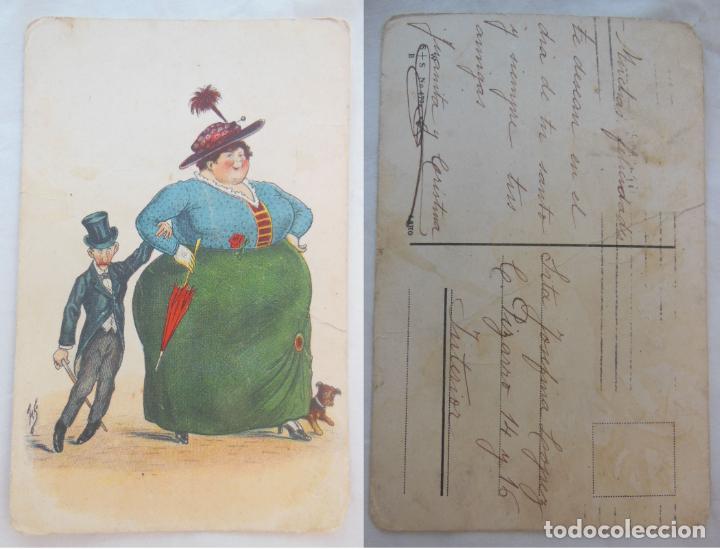 Muchas felicidades
te desean en el
dia de tu santo
y siempre tus
amigas
Juanita y Cristina
Srta Josefina Lopez
C/ Pizarro 14 y 16
Interior
todocoleccion.com